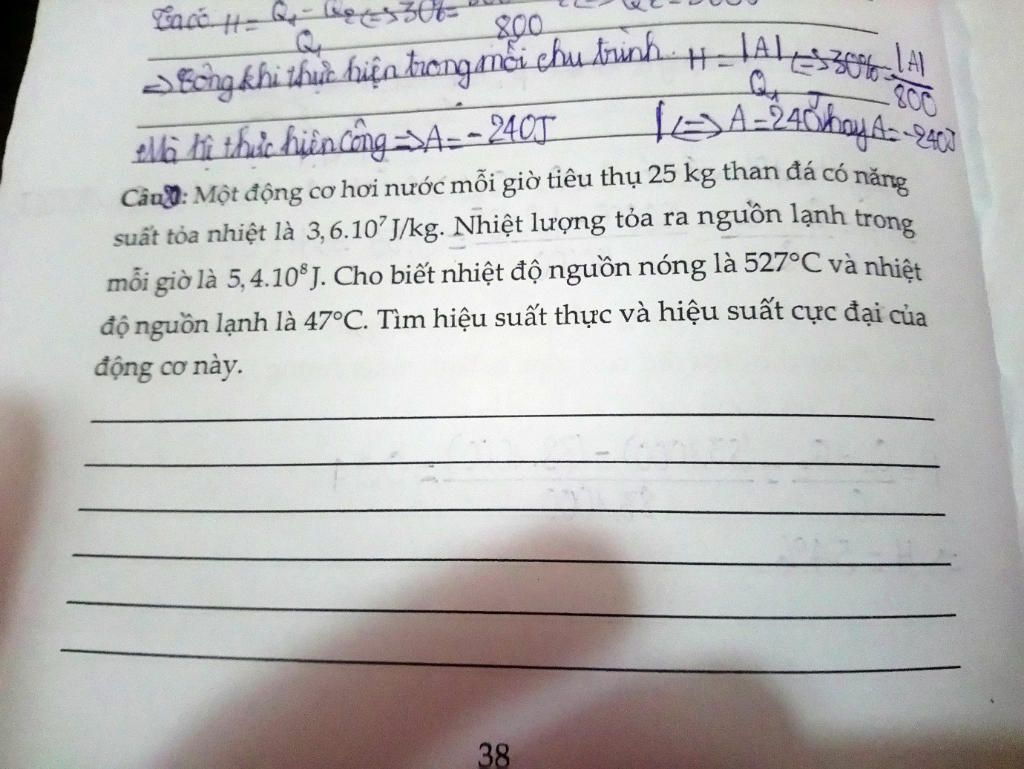 Ta có H = Q₁ - Q₂ <=> 30% =
Q₁ 800
=> Công khí thực hiện trong mỗi chu trình H = |A| <=> 30% = |A|
Q₁ 800
Mà khí thực hiện công => A = -240J <=> A = 240J hay A = -240J
Câu: Một động cơ hơi nước mỗi giờ tiêu thụ 25 kg than đá có năng
suất tỏa nhiệt là 3,6.10⁷ J/kg. Nhiệt lượng tỏa ra nguồn lạnh trong
mỗi giờ là 5,4.10⁸ J. Cho biết nhiệt độ nguồn nóng là 527°C và nhiệt
độ nguồn lạnh là 47°C. Tìm hiệu suất thực và hiệu suất cực đại của
động cơ này.
38